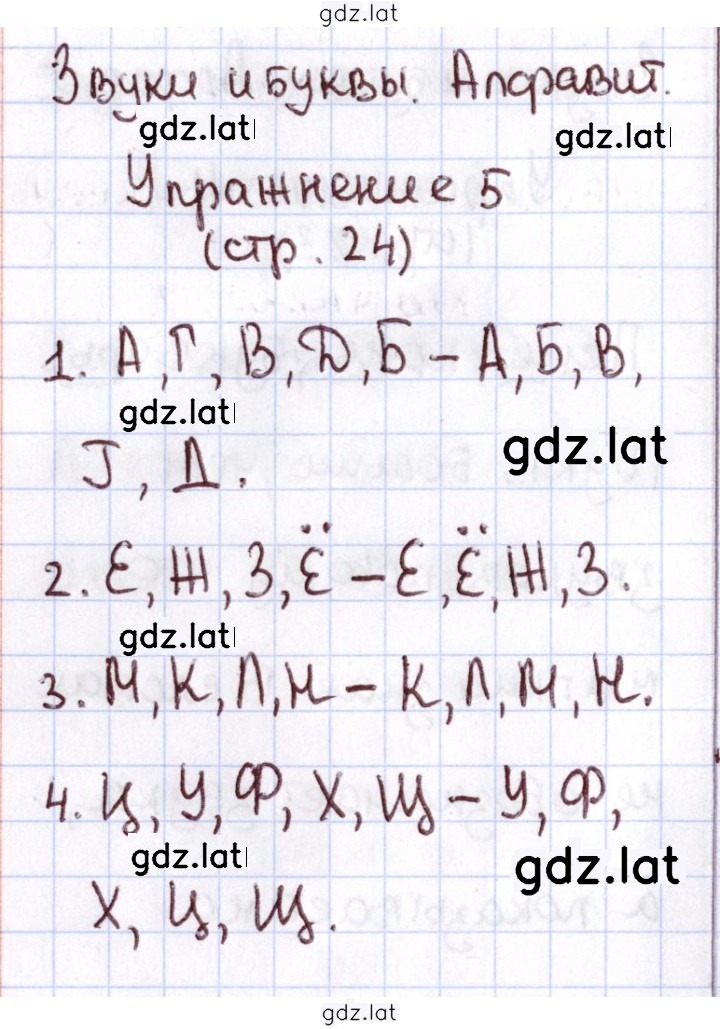 gdz.lat
Звуки и буквы. Алфавит.
gdz.lat
gdz.lat
Упражнение 5
(стр. 24)
1. А, Г, В, Д, Б – А, Б, В,
gdz.lat
gdz.lat
Г, Д.
2. Е, Ж, З, Ё – Е, Ё, Ж, З.
gdz.lat
3. М, К, Л, Н – К, Л, М, Н.
4. Ц, У, Ф, Х, Щ – У, Ф,
gdz.lat
gdz.lat
Х, Ц, Щ.
gdz.lat